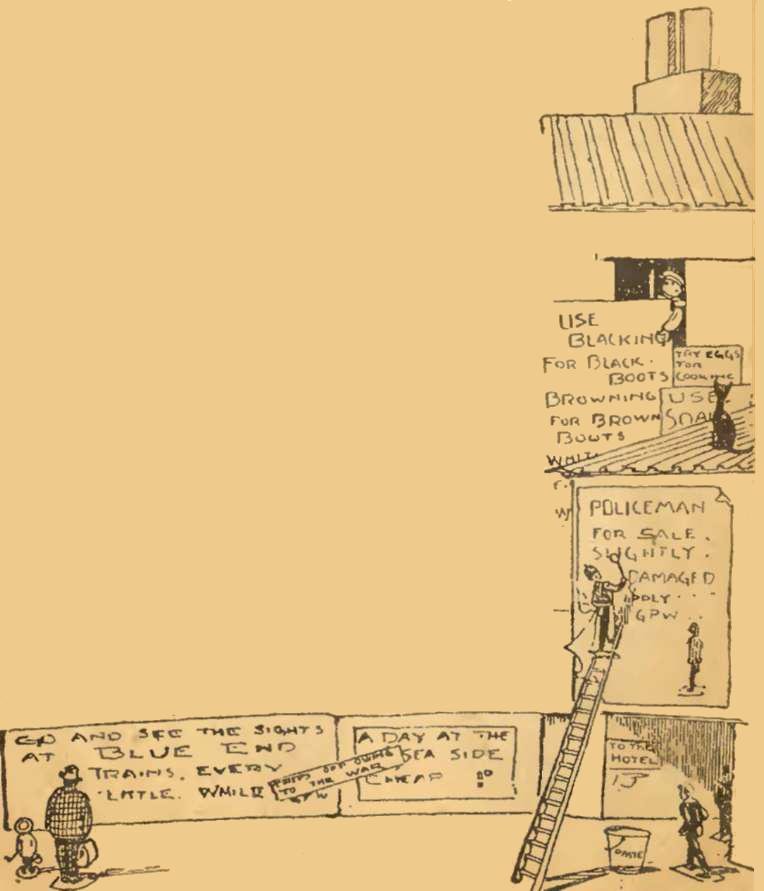 USE
BLACKING
FOR BLACK.
BOOTS
BROWNING
FOR BROWN
BOOTS
TRY EGGS
FOR
COOKING
USE
POLICEMAN
FOR SALE.
SLIGHTLY.
DAMAGED
GPW..
GO AND SEE THE SIGHTS
AT BLUE END
TRAINS. EVERY
LITTLE. WHILE
TRIPS OFF OWING
TO THE WAR
GPW
A DAY AT THE
SEA SIDE
CHEAP
TO THE
HOTEL
PASTE